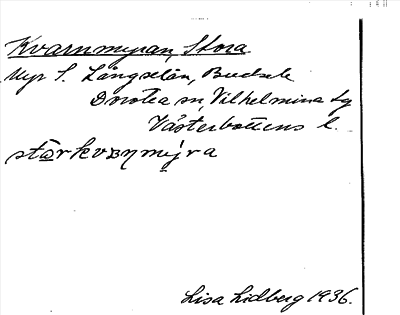 Kvarnmyran, Stora
Myr S. Långselån, Budsele
Dorotea sn, Vilhelmina tg
Västerbottens l.
Lisa Lidberg 1936.